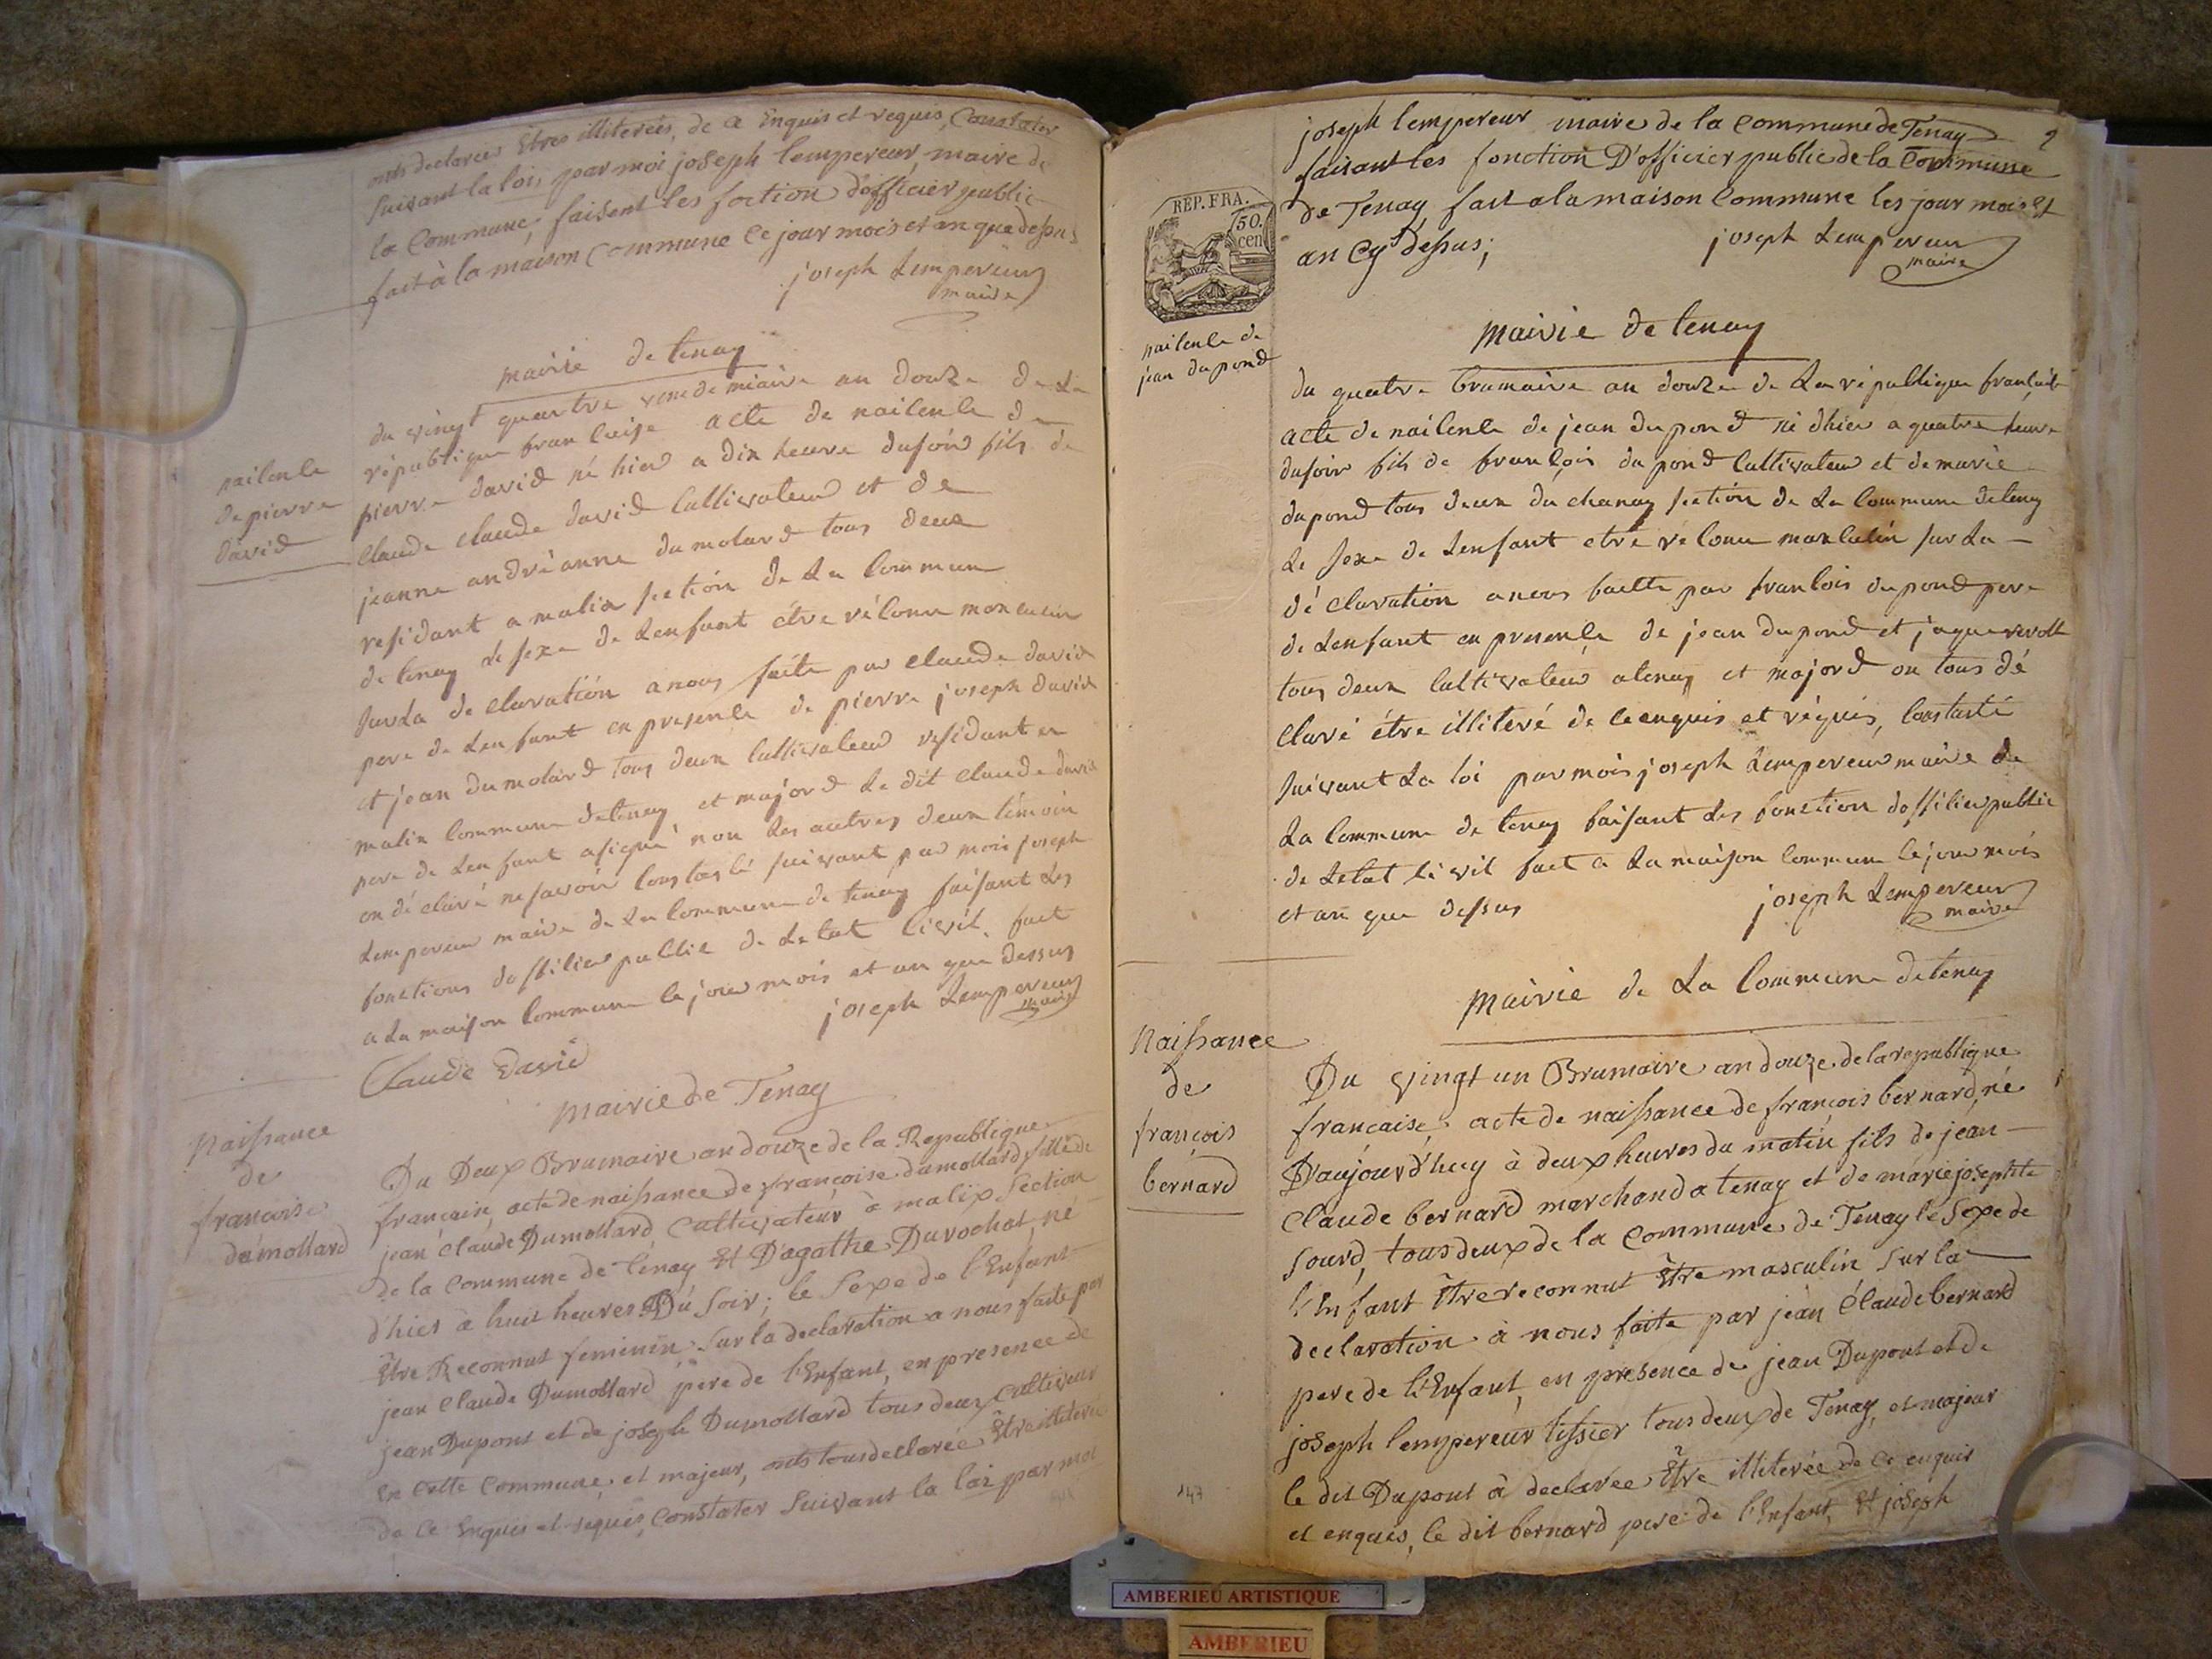 onts declarées Êtres illiterées, de ce Enquis et requis, Constater
suivant la loi, par moi joseph lempereur, maire de
la Commune, faisent les foction d'officier public
fait à la maison Commune ce jour mois et an que dessus
joseph Lempereur
maire
mairie de tenay
du vingt quautre vendemiaire an douze de La
république francaise acte de naicence de
naicence
de pierre
david
pierre david né hier a dix heure dusoir fils de
claude claude david cultivateur et de
jeanne andréanne dumolard tous deux
residant a malix section de La commun
de tenay Le sexe de Lenfant être réconu masculin
sur La declaration a nous faite par claude david
pere de Lenfant en presence de pierre joseph david
et jean dumolard tous deux cultivateur residant en
malix commune de tenay et majord Le dit claude david
pere de Lenfant a signé non Les autres deux témoin
on déclaré ne savoir constaté suivant par moi joseph
Lempereur maire de La commune de tenay faisant Les
fonctions dofficier public de Letat civil. fait
a La maison commune le jour mois et an que dessus
joseph Lempereur
maire
Claude David
Mairie de Tenay
Naissance
de
francoise
dumollard
Du Deux Brumaire an douze de la Republique
francaise, acte de naissance de francoise dumollard, fille de
jean Claude Dumollard, cultivateur à malix section
de la commune de tenay Et D'agathe Durochat, né
d'hier à huit heures Du Soir; le Sexe de l'Enfant
Être Reconnut feminin sur la declaration a nous faite par
jean Claude Dumollard père de l'Enfant, en presence de
jean Dupont et de joseph Dumollard tous deux cultiveur
en cette commune, et majeur, onts tous declarée Être illiteré
de ce enquis et requis, constater suivant la loi par moi
joseph lempereur maire de la Commune de Tenay
faisant les fonction D'officier public de la Commune
de Tenay fait a la maison Commune les jour mois Et
an Cy Dessus;
joseph Lempereur
maire
REP. FRA.
50.
cen
naicence de
jean dupond
Mairie de tenay
du quatre brumaire an douze de La république francaise
acte de naicence de jean dupond né dhier a quatre heure
dusoir fils de francois dupond cultivateur et de marie
dupond tous deux du chanay section de La commune de tenay
Le sexe de Lenfant etre réconu masculin sur La
déclaration a nous faitte par francois dupond pere
de Lenfant en presence de jean dupond et jaque revolt
tous deux cultivateur a tenay et majord on tous dé
claré être illiteré de ce enquis et réquis, constaté
suivant La loi par mois joseph Lempereur maire de
La commune de tenay faisant Les fonction dofficier public
de Letat civil fait a La maison commune le jour mois
et an que dessus
joseph Lempereur
maire
Mairie de La Commune de tenay
Naissance
de
françois
bernard
Du vingt un Brumaire an douze de la republique
francaise, acte de naissance de françois bernard, né
D'aujourd'huy à deux heures du matin fils de jean
Claude bernard marchand a tenay et de marie josephte
Sourd, tous deux de la Commune de Tenay le Sexe de
l'Enfant Être reconnut Être masculin sur la
declaration à nous faite par jean Claude bernard
pere de l'Enfant, en presence de jean Dupont et de
joseph lempereur tissier tous deux de Tenay, et majeur
le dit Dupont à declarée Être illiterée de ce enquis
et enquis, le dit bernard pere de l'Enfant, Et joseph
147
AMBERIEU ARTISTIQUE
AMBERIEU